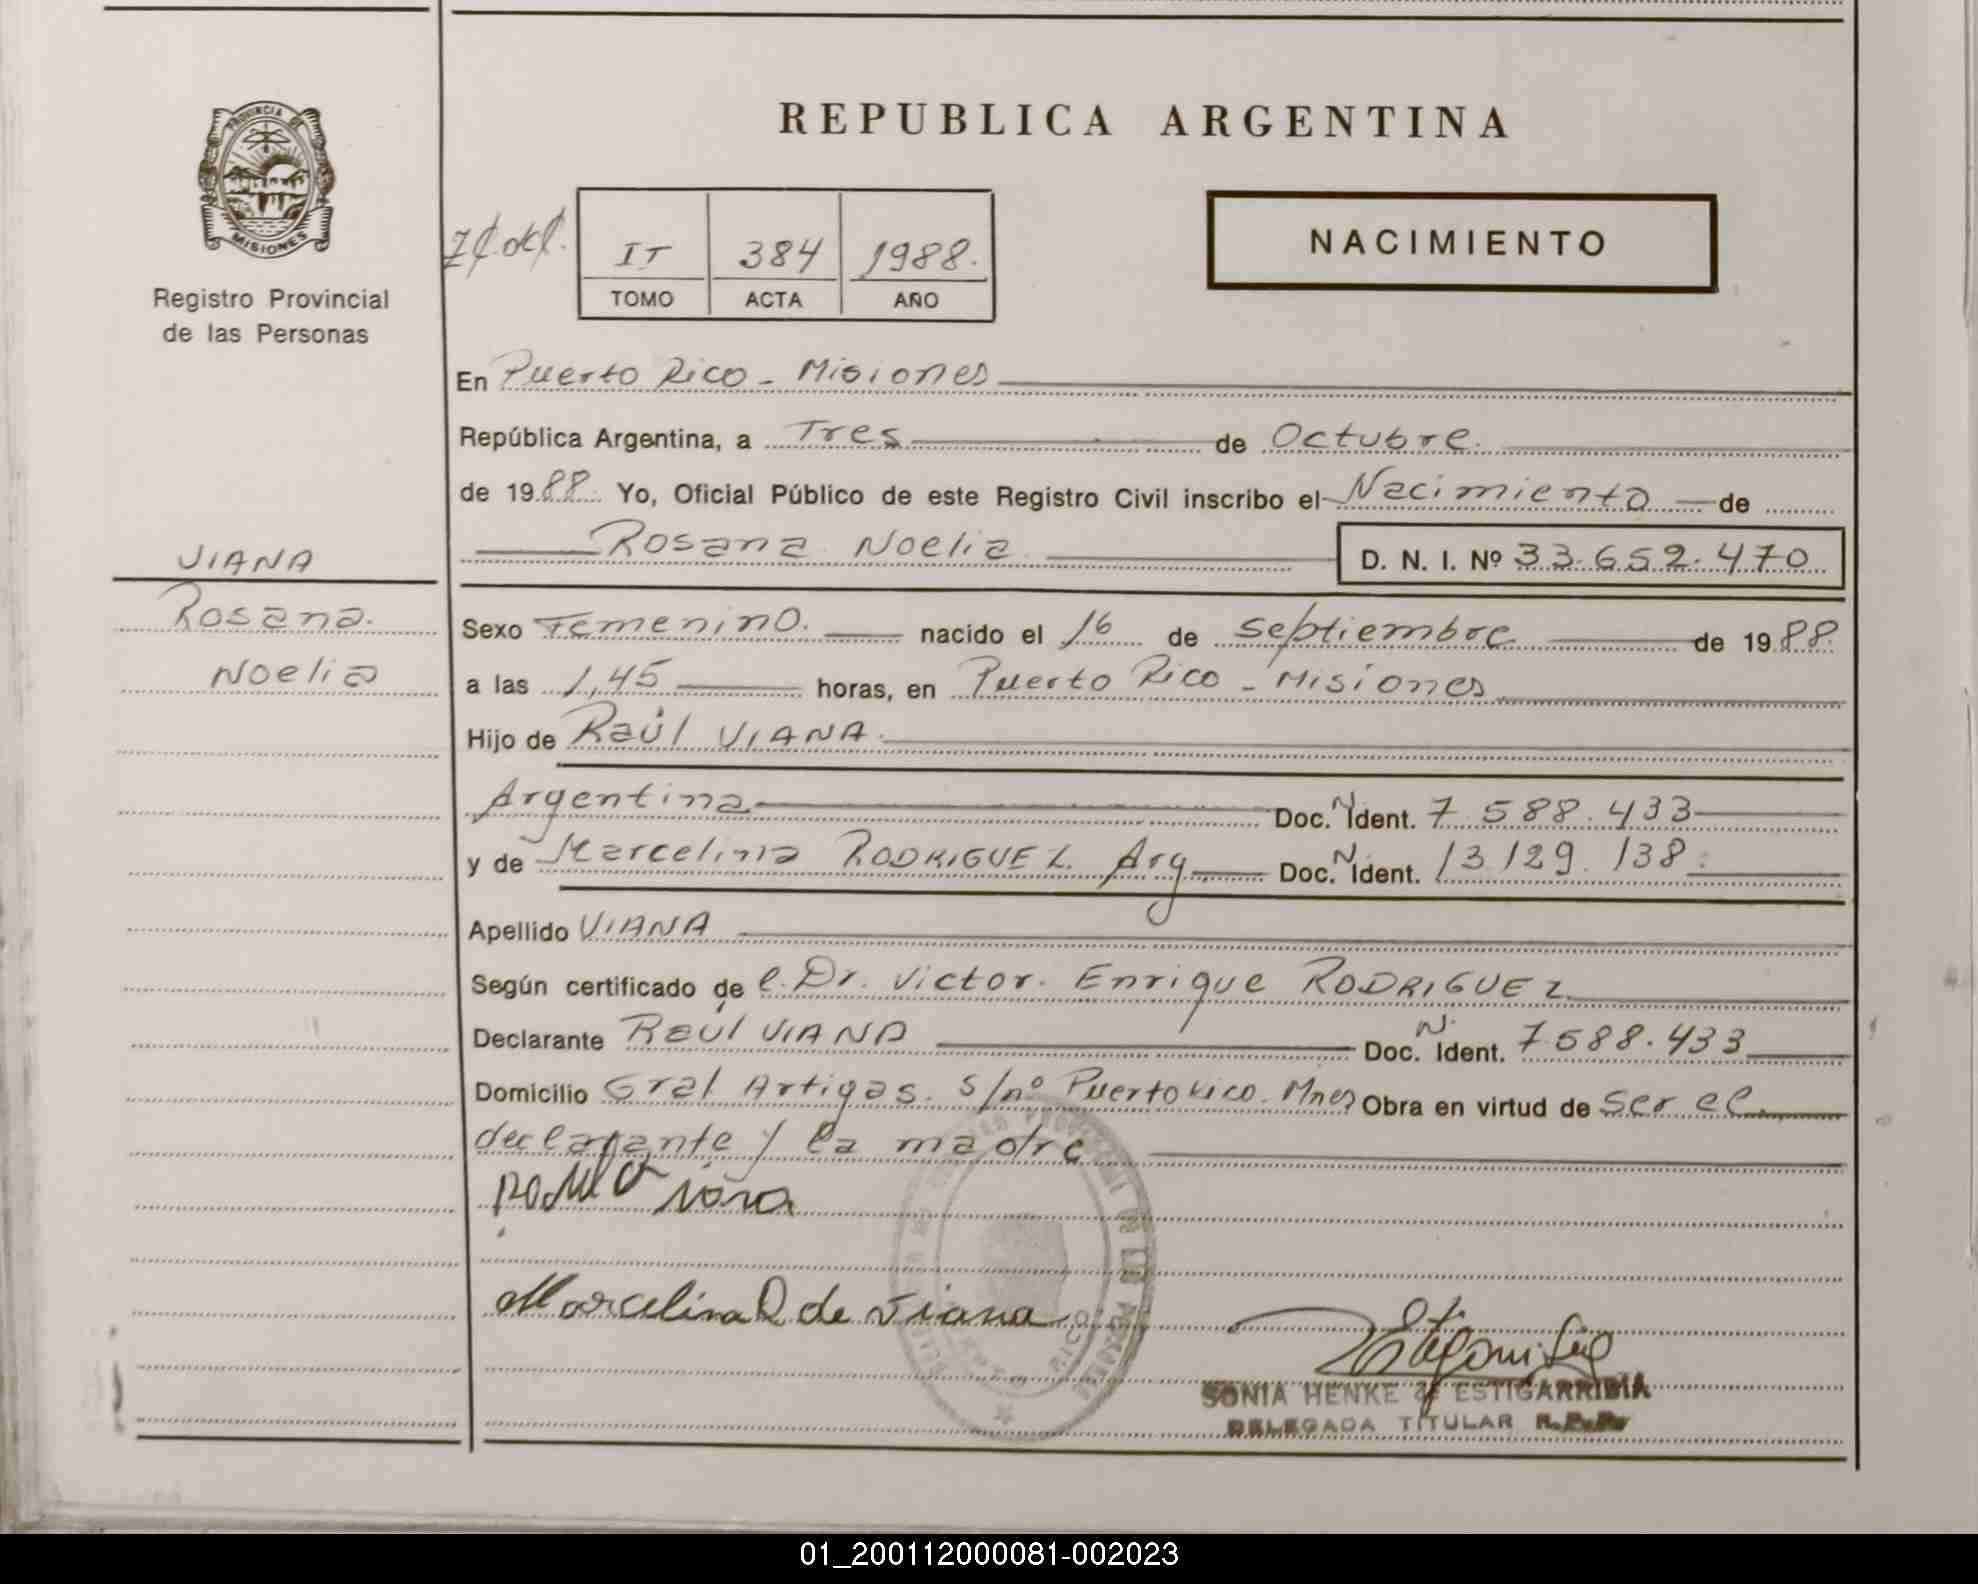 REPUBLICA ARGENTINA
PROVINCIA DE
MISIONES
Registro Provincial
de las Personas
IT 384 1988.
TOMO ACTA AÑO
NACIMIENTO
En Puerto Rico - Misiones
República Argentina, a Tres de Octubre.
de 1988. Yo, Oficial Público de este Registro Civil inscribo el Nacimiento de
Rosana Noelia D. N. I. Nº 33.652.470
VIANA
Rosana.
Noelia
Sexo Femenino. nacido el 16 de Septiembre de 1988.
a las 1,45 horas, en Puerto Rico - Misiones
Hijo de Raúl VIANA.
Argentina Doc. N Ident. 7.588.433
y de Marcelina RODRIGUEZ. Arg Doc. N Ident. 13.129.138.
Apellido VIANA
Según certificado de l. Dr. Victor. Enrique RODRIGUEZ
Declarante RAÚL VIANA Doc. N. Ident. 7.588.433
Domicilio Gral Artigas. S/nº Puerto Rico. Mnes Obra en virtud de ser el
declarante y la madre
Marcelina R de Viana
SONIA HENKE de ESTIGARRIBIA
DELEGADA TITULAR R.P.P.
01_200112000081-002023